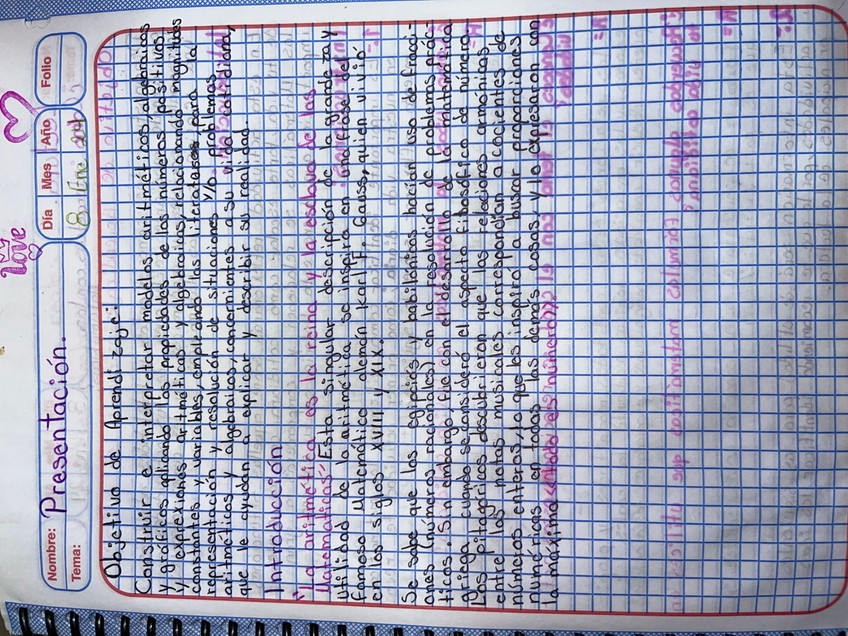 my
love
Nombre: Presentación.
Día Mes Año Folio
Tema:
Objetivo de Aprendizaje:
Construir e interpretar modelos aritméticos, algebraicos
y gráficos aplicando las propiedades de los números positivos
y expresiones aritméticas y algebraicas, relacionando magnitudes
constantes y variables, empleando las literales para la
representación y resolución de situaciones y/o problemas
aritméticos y algebraicos, concernientes a su vida cotidiana,
que le ayudan a explicar y describir su realidad.
Introducción
"La aritmética es la reina y la esclava de las
Matemáticas". Esta singular descripción de la grandeza y
utilidad de la aritmética se inspira en una frase del
famoso Matemático alemán Karl F. Gauss, quien vivió
en los siglos XVIII y XIX.
Se sabe que los egipcios y babilonios hacían uso de fracci-
ones (números racionales) en la resolución de problemas prác-
ticos. Sin embargo, fue con el desarrollo de la matemática
griega, cuando se consideró el aspecto filosófico de número.
Los pitagóricos descubrieron que las relaciones armónicas
entre las notas musicales correspondían a cocientes de
números enteros, lo que les inspiró a buscar proporciones
numéricas en todas las demás cosas, y lo expresaron con
la máxima <<todo es número>>